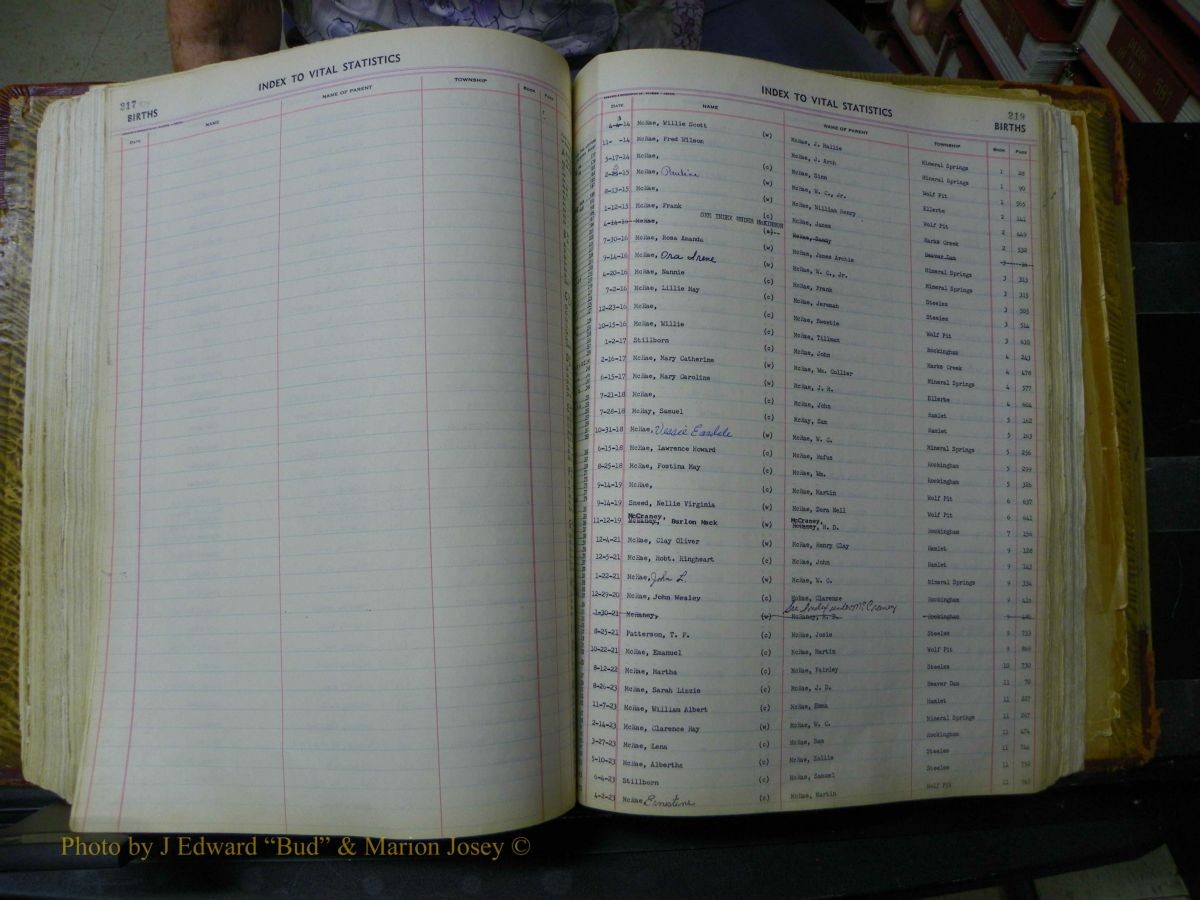 217
INDEX TO VITAL STATISTICS
BIRTHS
DATE NAME NAME OF PARENT TOWNSHIP BOOK PAGE
INDEX TO VITAL STATISTICS
219
BIRTHS
DATE NAME NAME OF PARENT TOWNSHIP BOOK PAGE
3
4-4-14 McRae, Willie Scott (w) McRae, J. Hallie Mineral Springs 1 28
11- -14 McRae, Fred Wilson McRae, J. Arch Mineral Springs 1 90
5-17-14 McRae, (c) McRae, Sinn Wolf Pit 1 565
McRae, Pauline (w) McRae, W. C., Jr. Ellerbe 2 141
8-13-15 McRae, (w) McRae, William Henry Wolf Pit 2 449
1-12-15 McRae, Frank (c) McRae, James Marks Creek 2 532
4-14-16 McRae, SEE INDEX UNDER McKINNON (w) McRae, Sandy Beaver Dam 3
7-30-16 McRae, Rosa Amanda (w) McRae, James Archie Mineral Springs 3 313
9-14-16 McRae, Ora Irene (w) McRae, W. C., Jr. Mineral Springs 3 315
4-20-16 McRae, Nannie (c) McRae, Frank Steeles 3 503
7-2-16 McRae, Lillie May (c) McRae, Jeremah Steeles 3 514
12-23-16 McRae, (c) McRae, Sweetie Wolf Pit 3 610
10-15-16 McRae, Willie (c) McRae, Tillman Rockingham 4 243
1-2-17 Stillborn (c) McRae, John Marks Creek 4 476
2-16-17 McRae, Mary Catherine (w) McRae, Wm. Collier Mineral Springs 4 577
6-15-17 McRae, Mary Caroline (w) McRae, J. R. Ellerbe 4 604
7-21-18 McRae, (c) McRae, John Hamlet 5 162
7-28-18 McRay, Samuel (c) McRay, Sam Hamlet 5 163
10-31-18 McRae, Vessie Easdale (w) McRae, W. C. Mineral Springs 5 256
6-15-18 McRae, Lawrence Howard (c) McRae, Rufus Rockingham 5 299
8-25-18 McRae, Postina May (c) McRae, Wm. Rockingham 5 326
9-14-19 McRae, (c) McRae, Martin Wolf Pit 6 637
9-14-19 Sneed, Nellie Virginia (w) McRae, Dora Nell Wolf Pit 6 641
McCraney, McCraney,
11-12-19 McRaney, Burlon Mack (w) McRaney, H. D. Rockingham 7 156
12-4-21 McRae, Clay Oliver (w) McRae, Henry Clay Hamlet 9 128
12-5-21 McRae, Robt. Ringheart (c) McRae, John Hamlet 9 143
1-22-21 McRae, John L. (w) McRae, W. C. Mineral Springs 9 334
12-29-20 McRae, John Wesley (c) McRae, Clarence Rockingham 9 410
See Index under McCraney
1-30-21 McRaney, (w) McRaney, H. D. Rockingham 9
8-25-21 Patterson, T. P. (c) McRae, Josie Steeles 9 733
10-22-21 McRae, Emanuel (c) McRae, Martin Wolf Pit 9
8-12-22 McRae, Martha (c) McRae, Fairley Steeles 10 730
8-26-23 McRae, Sarah Lizzie (c) McRae, J. D. Beaver Dam 11 70
11-7-23 McRae, William Albert (c) McRae, Emma Hamlet 11 227
2-14-23 McRae, Clarence Ray (w) McRae, W. C. Mineral Springs 11 267
3-27-23 McRae, Lena (c) McRae, Dan Rockingham 11 474
5-10-23 McRae, Albertha (c) McRae, Zollie Steeles 11
6-4-23 Stillborn (c) McRae, Samuel Steeles 11
4-2-23 McRae, Ernestine (c) McRae, Martin Wolf Pit 11
Photo by J Edward “Bud” & Marion Josey ©